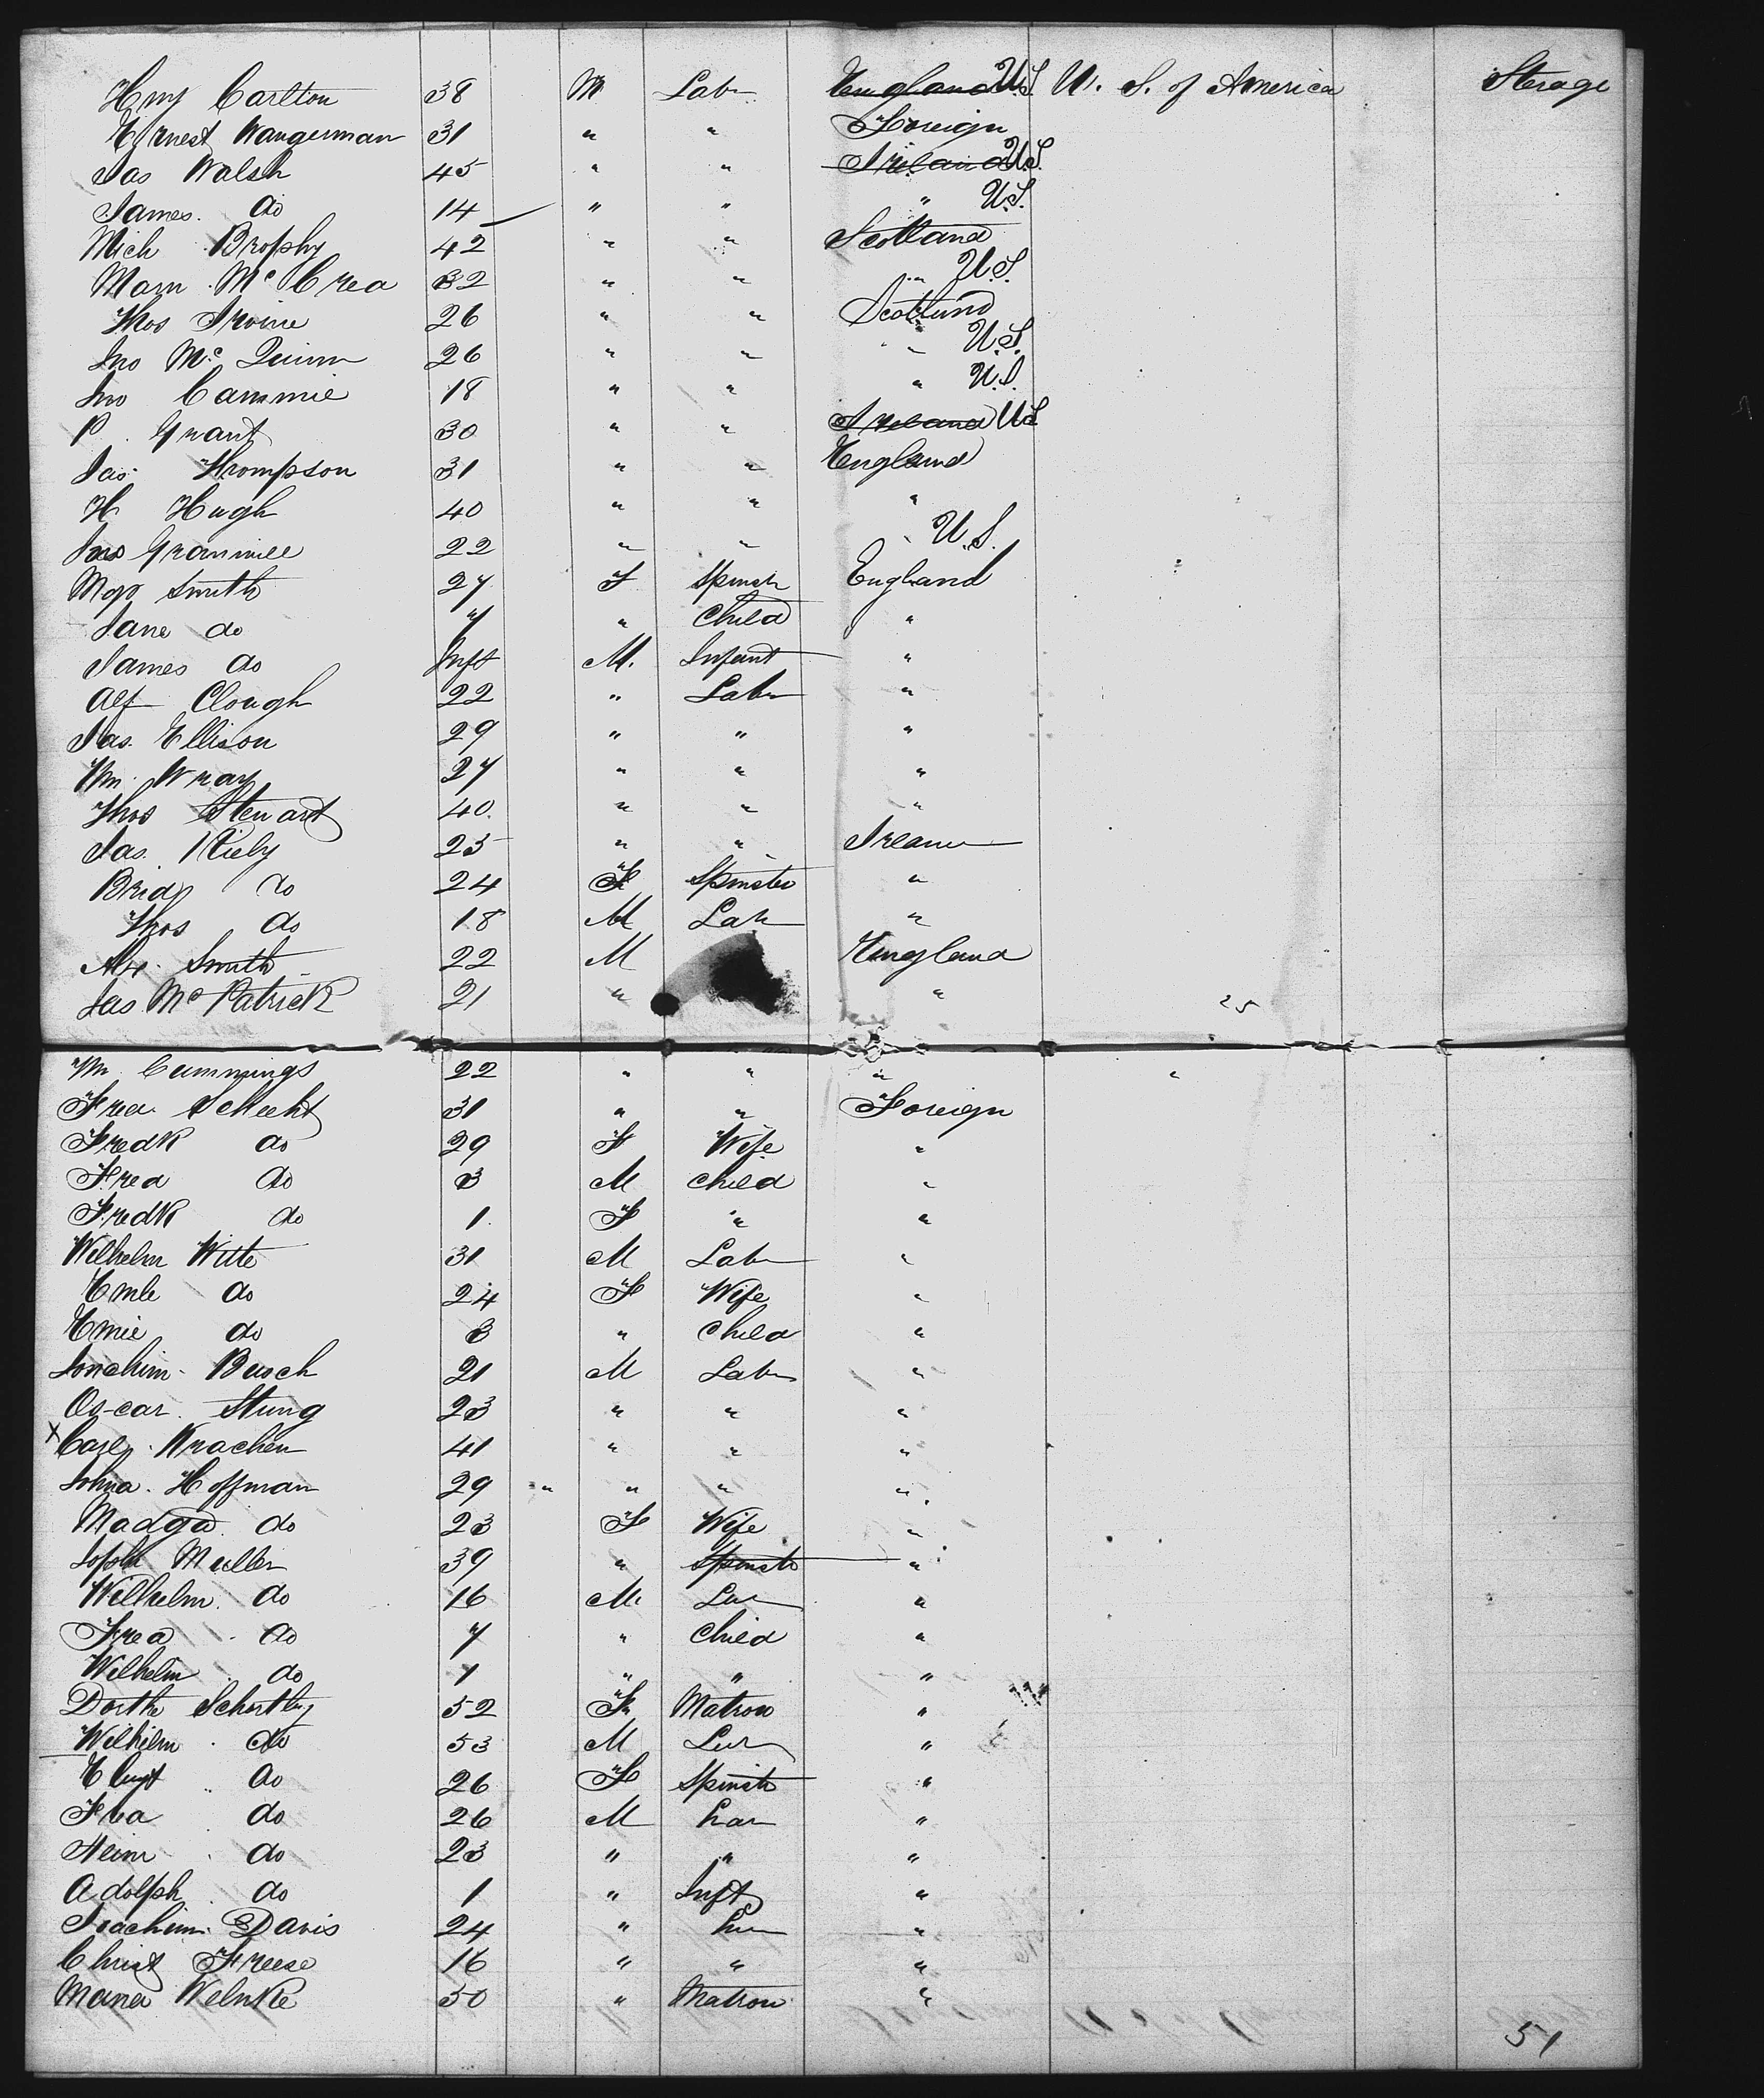 Hny Carlton 38 M Labr England U.S. U. S. of America Sterage
Ernest Wangerman 31 " " Foreign
Jas Walsh 45 " " Ireland U.S.
James do 14 " " " U.S.
Mich Brophy 42 " " Scotland
Mam McCrea 32 " " " U.S.
Thos Irvine 26 " " Scotland
Jno McQuinn 26 " " " U.S.
Jno Cammie 18 " " " U.S.
P. Grant 30 " " Ireland US
Jas Thompson 31 " " England
H Hugh 40 " " "
Jas 22 " " " U.S.
Mgt Smith 27 F Spinstr England
Jane do 7 " Child "
James do Inft M. Infant "
Alf Clough 22 " Labr "
Jas. Ellison 29 " " "
Wm Wray 27 " " "
Thos Stewart 40. " "  "
Jas. Kiely 25 " "
Bridg do 24 F Spinster "
Thos do 18 M Labr "
Alex. Smith 22 M England
Jas. McPatrick 21 " " 25
Wm Cummings 22 " " " "
Fred Schecht 31 " " Foreign
Fredk do 29 F Wife "
Fred do 3 M Child "
Fredk do 1. F " "
Wilhelm Witte 31 M Labr "
Emle do 24 F Wife "
Emie do 3 " Child "
Joachim Busch 21 M Labr "
Oscar Stung 23 " " "
x Wrachen 41 " " "
Johna. Hoffman 29 " " " "
Madga do 23 F Wife "
Muller 39 " Spinstr "
Wilhelm. do 16 M. Lar "
Fred do 7 " Child "
Wilhelm do 1 " " "
Dorthe 52 F. Matron "
Wilhelm do 53 M Lar "
do 26 F Spinstr "
do 26 M Lar "
Heinr do 23 " " "
Adolph do 1 " Inft "
Joachim Davis 24 " "
Christ Freese 16 " " "
Maria Welnke 50 " Matron "
51